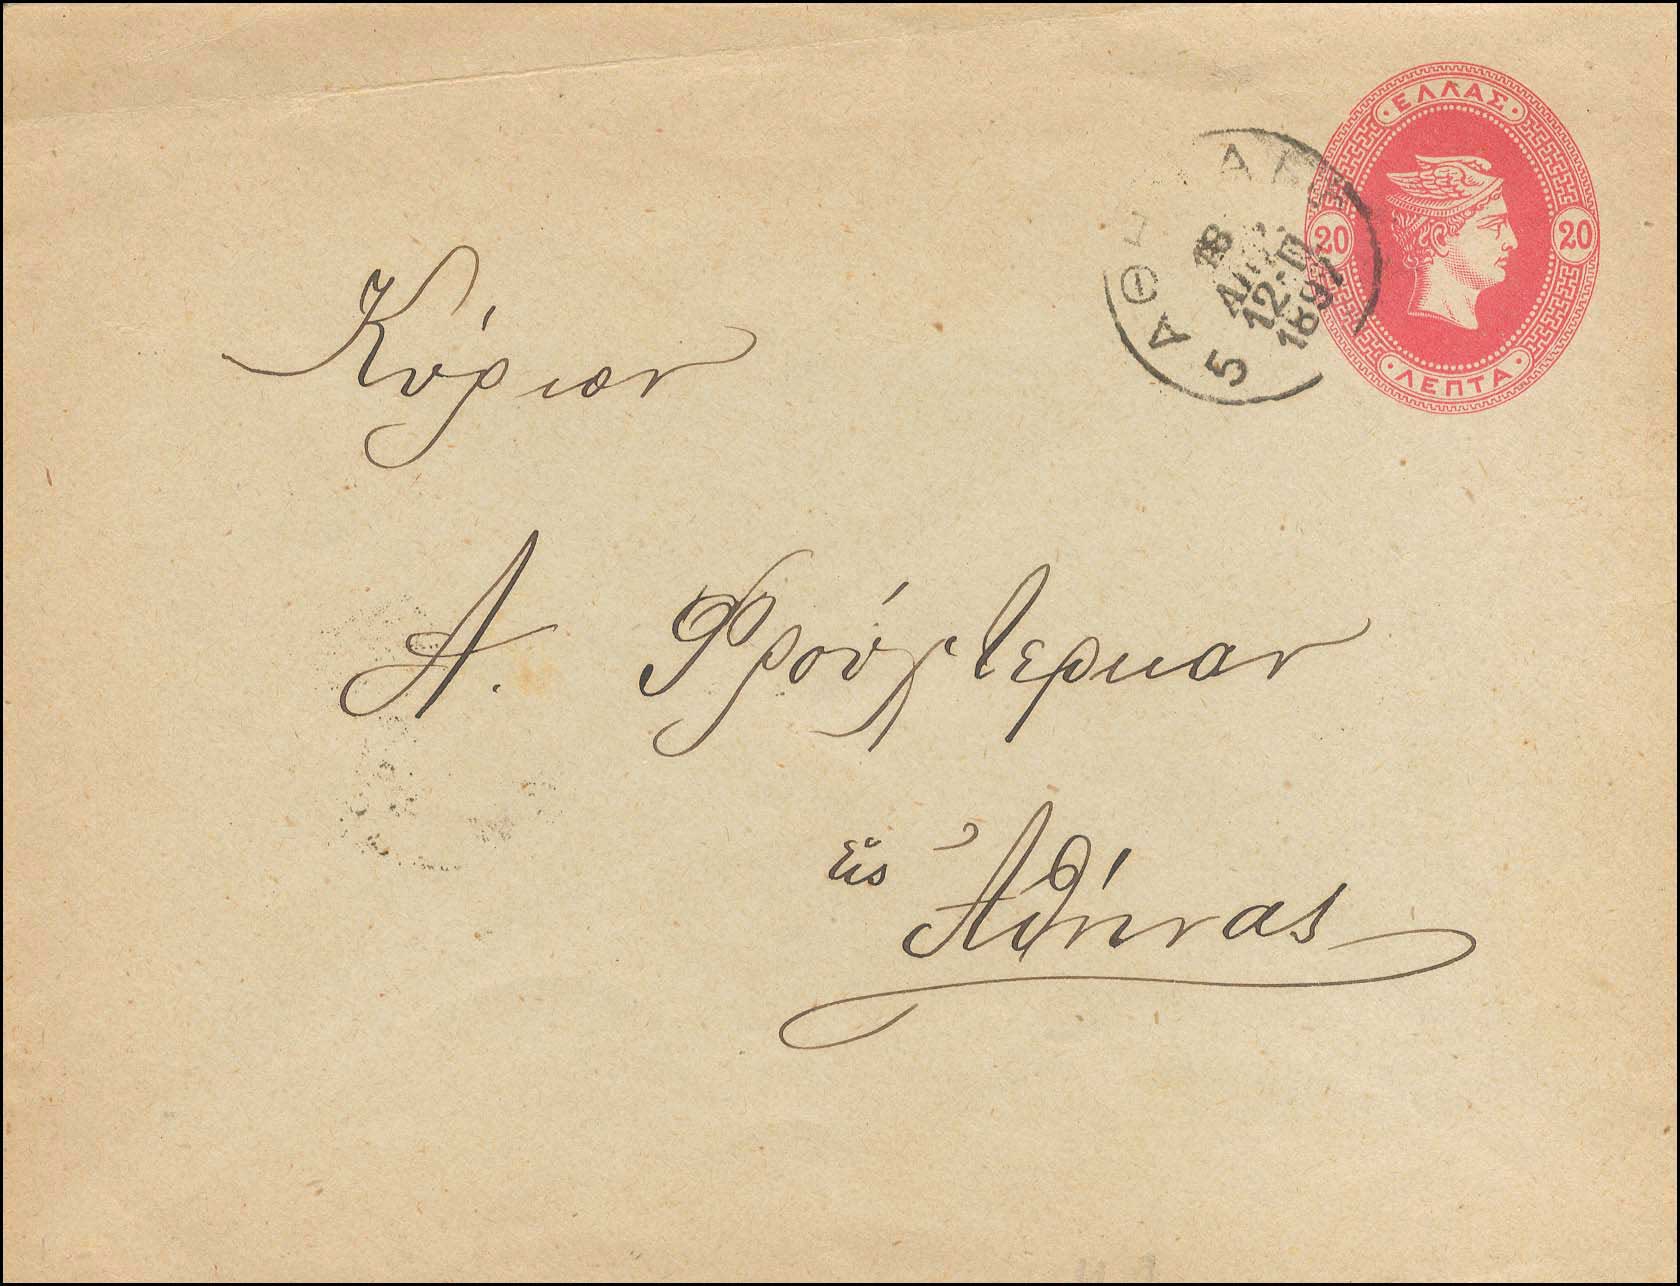 ΕΛΛΑΣ
20 20
ΛΕΠΤΑ
5 ΑΘΗΝΑΙ
18
ΑΠΡ.
12-Π
1897
Κύριον
Α. Φρούστερμαν
εἰς Ἀθήνας